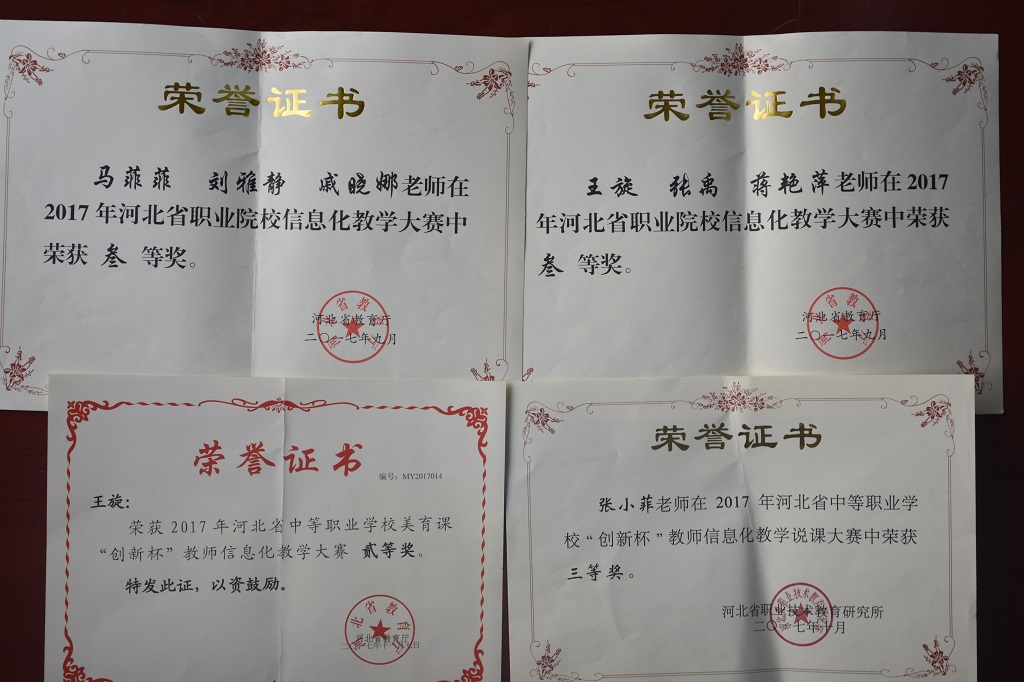 荣誉证书
马菲菲 刘雅静 戚晓娜老师在
2017年河北省职业院校信息化教学大赛中
荣获 叁 等奖。
河北省教育厅
二〇一七年九月
荣誉证书
王旋 张禹 蒋艳萍老师在2017
年河北省职业院校信息化教学大赛中荣获
叁 等奖。
河北省教育厅
二〇一七年九月
荣誉证书
编号：MY2017014
王旋：
荣获2017年河北省中等职业学校美育课
“创新杯”教师信息化教学大赛 贰等奖。
特发此证，以资鼓励。
河北省教育厅
荣誉证书
张小菲老师在 2017 年河北省中等职业学
校“创新杯”教师信息化教学说课大赛中荣获
三等奖。
河北省职业技术教育研究所
二〇一七年十月